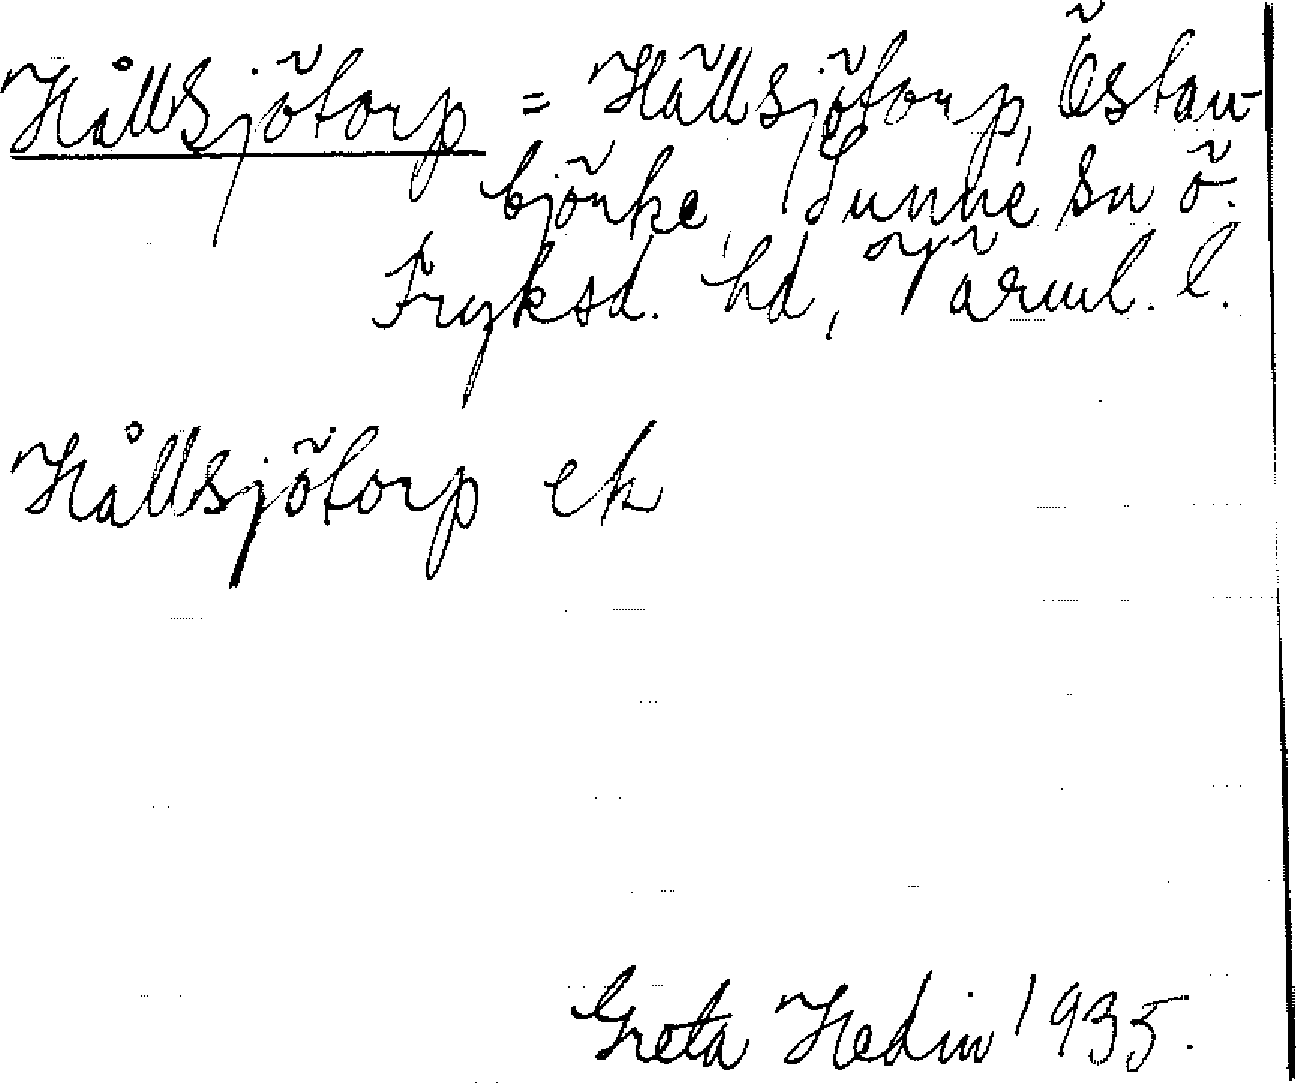 Hållsjötorp = Hällsjötorp, Östan-
björke, Sunne sn ö.
Fryksd. hd, Värml. l.
Hållsjötorp ek
Greta Hedin 1935.